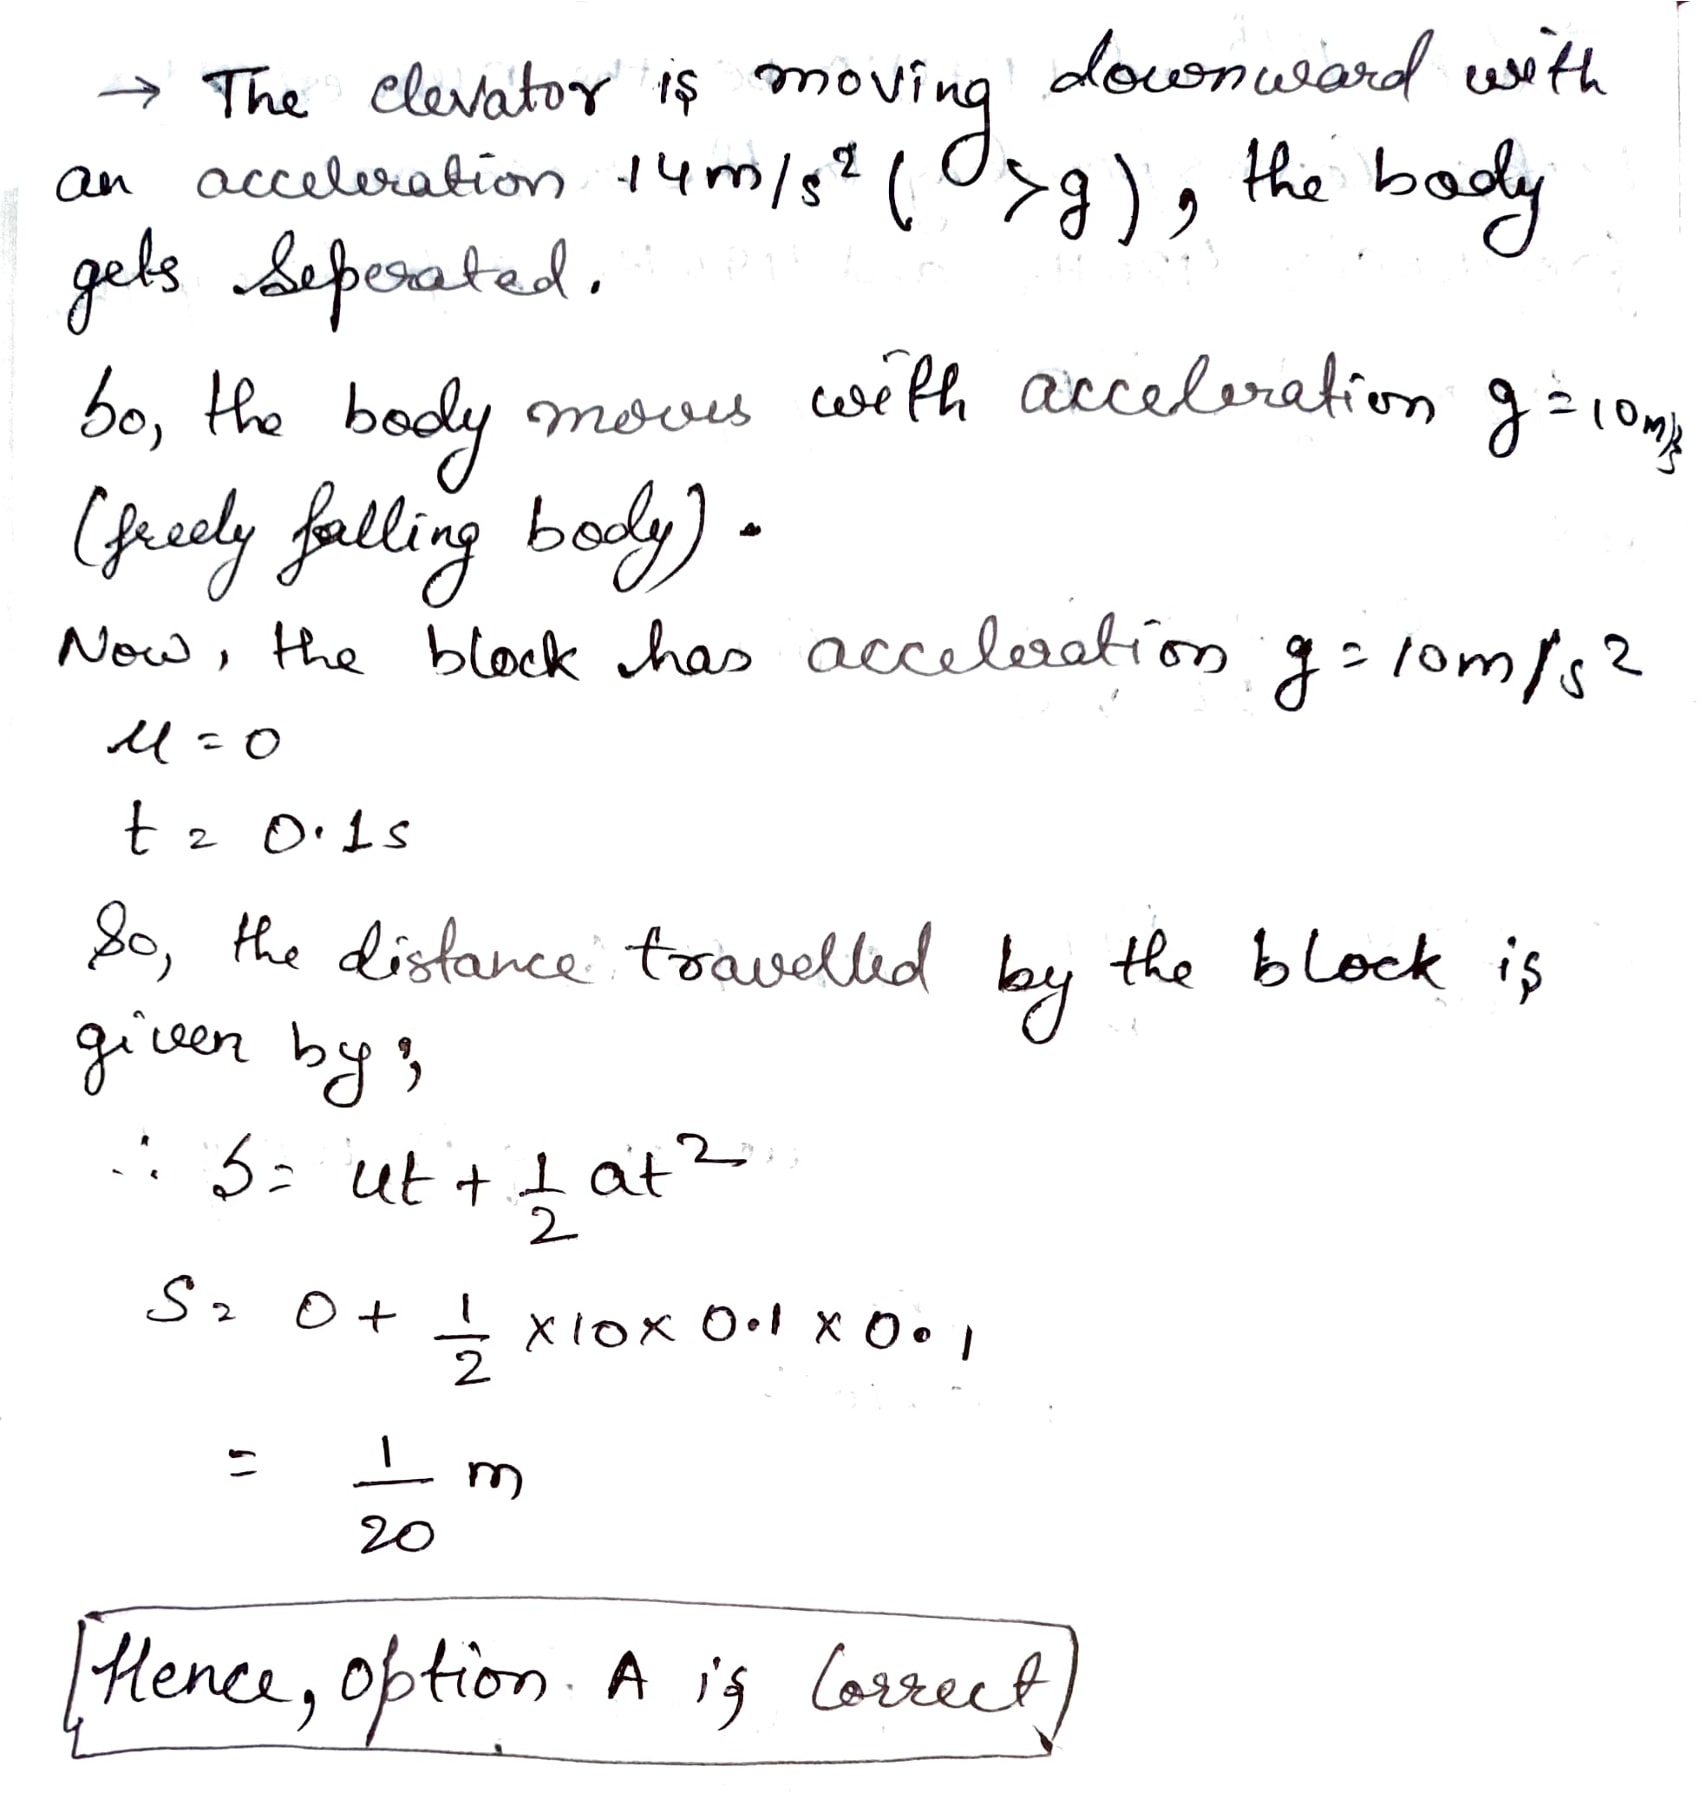 → The elevator is moving downward with
an acceleration 14m/s² (>g), the body
gets Seperated.
So, the body moves with acceleration g = 10m/s²
(freely falling body).
Now, the block has acceleration g = 10m/s²
u = 0
t = 0.1s
So, the distance travelled by the block is
given by;
∴ S = ut + 1/2 at²
S = 0 + 1/2 × 10 × 0.1 × 0.1
= 1/20 m
Hence, option A is Correct